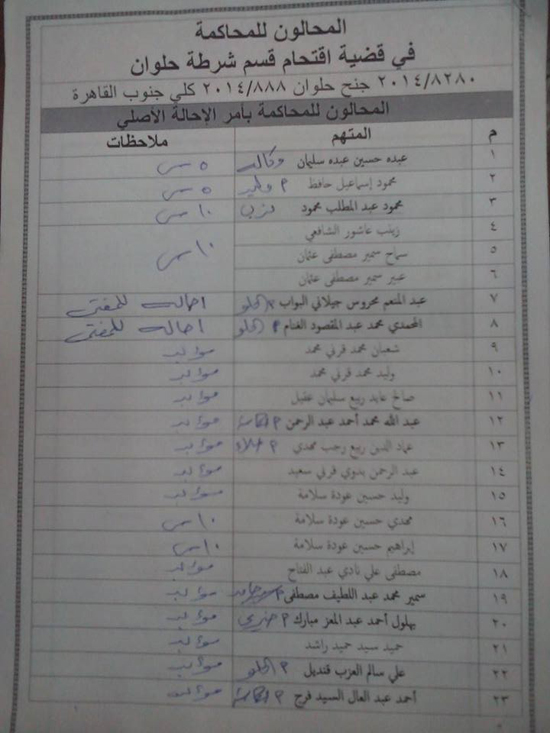 المحالون للمحاكمة
في قضية اقتحام قسم شرطة حلوان
٢٠١٤/٨٢٨٠ جنح حلوان ٢٠١٤/٨٨٨ كلي جنوب القاهرة
المحالون للمحاكمة بأمر الإحالة الأصلي
م المتهم ملاحظات
١ عبده حسين عبده سليمان ٥ س
٢ محمود إسماعيل حافظ ٥ س
٣ محمود عبد المطلب محمود ١٠ س
٤ زينب عاشور الشافعي
٥ سماح سمير مصطفى عثمان ١٠ س
٦ عبير سمير مصطفى عثمان
٧ عبد المنعم محروس جيلاني البواب م الحلو احاله للمفتى
٨ المحمدي محمد عبد المقصود الغنام م الحلو احاله للمفتى
٩ شعبان محمد قرني محمد مؤبد
١٠ وليد محمد قرني محمد مؤبد
١١ صالح عايد ربيع سليمان عقيل مؤبد
١٢ عبد الله محمد أحمد عبد الرحمن مؤبد
١٣ عماد الدين ربيع رجب مهدي م علاء مؤبد
١٤ عبد الرحمن بدوي قرني سعيد مؤبد
١٥ وليد حسين عودة سلامة مؤبد
١٦ مهدي حسين عودة سلامة ١٠ س
١٧ إبراهيم حسين عودة سلامة ١٠ س
١٨ مصطفى علي نادي عبد الفتاح مؤبد
١٩ سمير محمد عبد اللطيف مصطفى مؤبد
٢٠ بهلول أحمد عبد المعز مبارك مؤبد
٢١ حميد سيد حميد راشد مؤبد
٢٢ علي سالم العزب قنديل م الحلو مؤبد
٢٣ أحمد عبد العال السيد فرج مؤبد